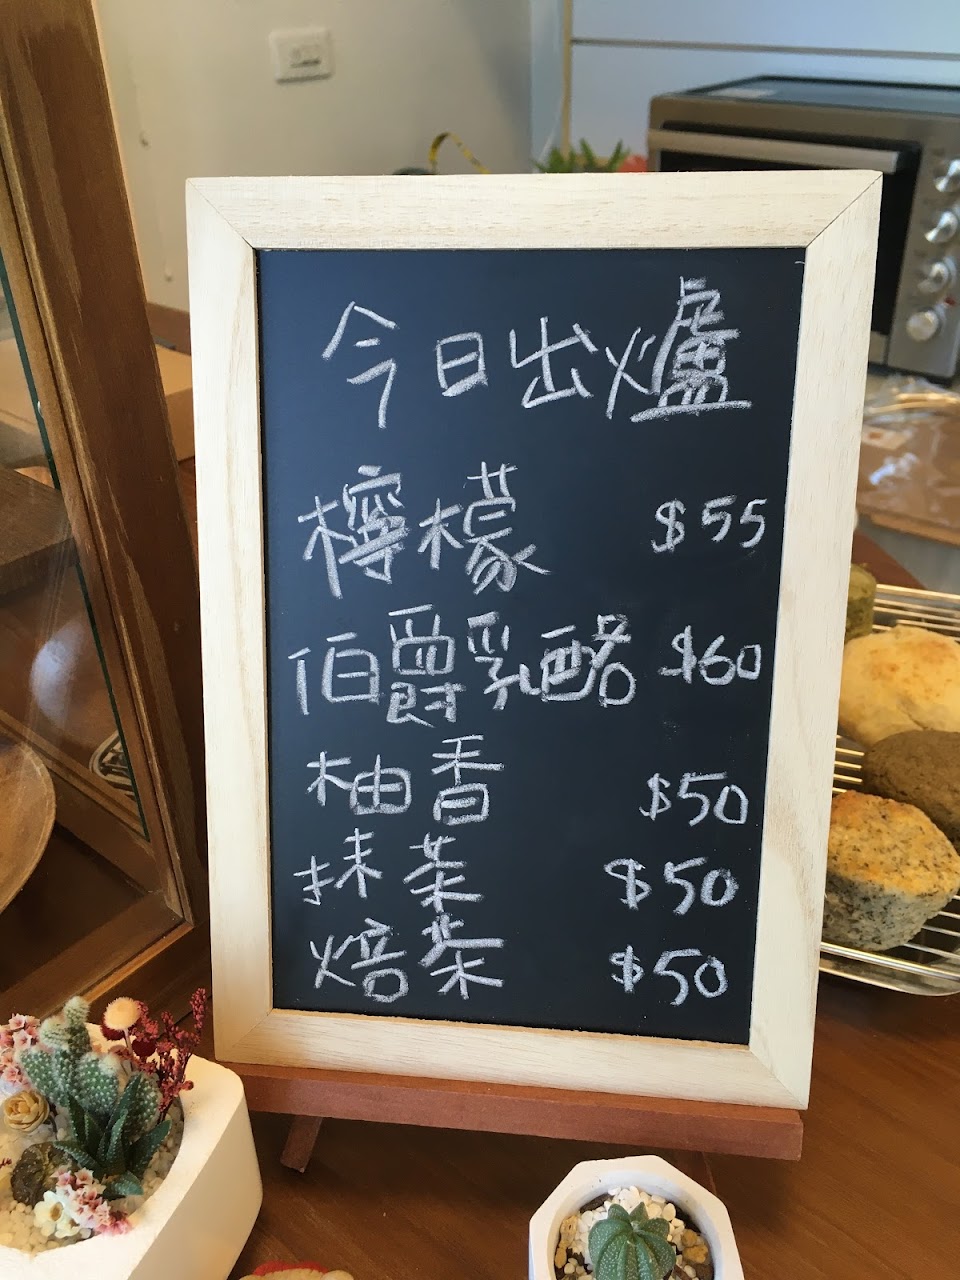 今日出爐
檸檬 $55
伯爵乳酪 $60
柚香 $50
抹茶 $50
焙茶 $50